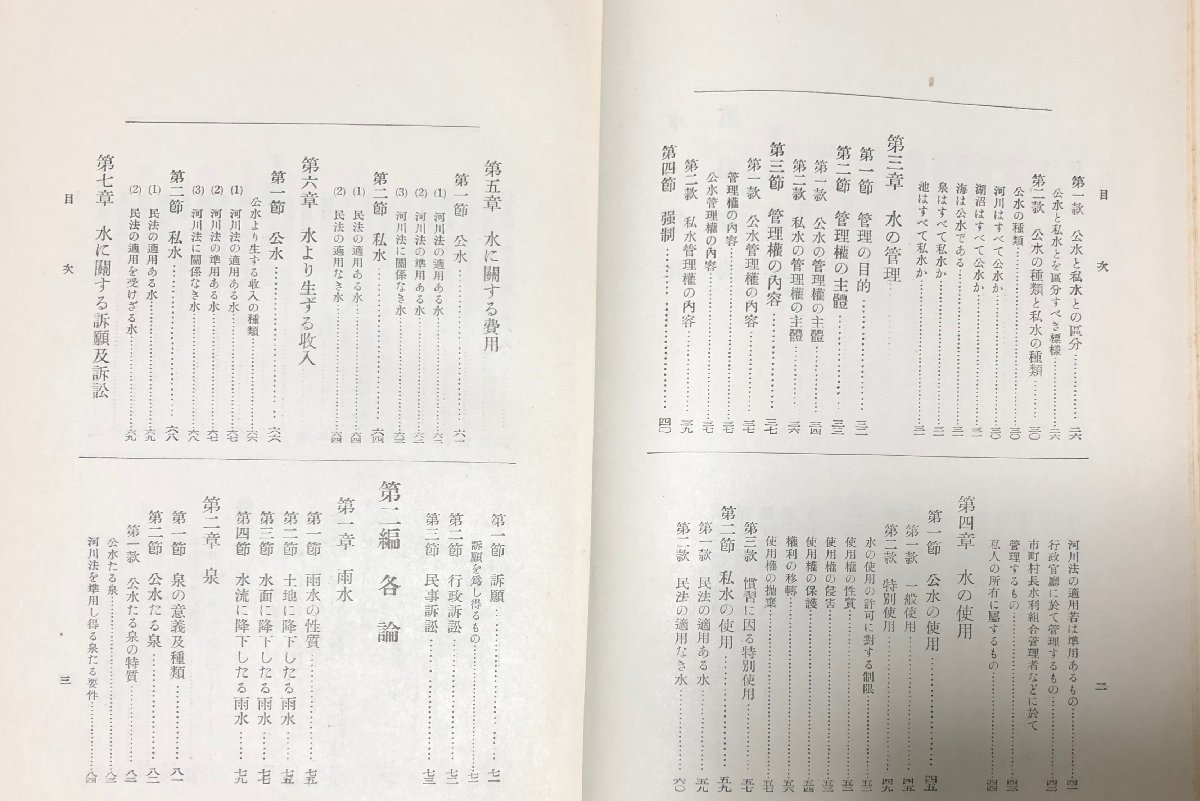 目次
第一款 公水と私水との區分……二六
公水と私水とを區分すべき標樣……二六
第二款 公水の種類と私水の種類……三〇
公水の種類……三〇
河川はすべて公水か……三〇
湖沼はすべて公水か……三一
海は公水である……三一
泉はすべて私水か……三一
池はすべて私水か……三一
第三章 水の管理
第一節 管理の目的……三二
第二節 管理權の主體……三三
第一款 公水の管理權の主體……三四
第二款 私水の管理權の主體……三六
第三節 管理權の内容……三七
第一款 公水管理權の内容……三七
管理權の内容……三七
公水管理權の内容……三七
第二款 私水管理權の内容……三九
第四節 强制……四〇
河川法の適用若は準用あるもの……四一
行政官廳に於て管理するもの……四二
市町村長水利組合管理者などに於て
管理するもの……四三
私人の所有に屬するもの……四四
第四章 水の使用
第一節 公水の使用……四五
第一款 一般使用……四五
第二款 特別使用……四九
水の使用の許可に對する制限……五一
使用權の性質……五二
使用權の侵害……五三
使用權の保護……五四
權利の移轉……五六
使用權の拋棄……五七
第三款 慣習に因る特別使用……五七
第二節 私水の使用……五九
第一款 民法の適用ある水……五九
第二款 民法の適用なき水……六〇
二
第五章 水に關する費用
第一節 公水……六一
(1) 河川法の適用ある水……六一
(2) 河川法の準用ある水……六二
(3) 河川法に關係なき水……六三
第二節 私水……六四
(1) 民法の適用ある水……六四
(2) 民法の適用なき水……六四
第六章 水より生ずる收入
第一節 公水……六六
公水より生する收入の種類……六六
(1) 河川法の適用ある水……六七
(2) 河川法の準用ある水……六七
(3) 河川法に關係なき水……六八
第二節 私水……六八
(1) 民法の適用ある水……六九
(2) 民法の適用を受けざる水……六九
第七章 水に關する訴願及訴訟
目次
第一節 訴願……七一
訴願を爲し得るもの……七二
第二節 行政訴訟……七二
第三節 民事訴訟……七三
第二編 各論
第一章 雨水
第一節 雨水の性質……七五
第二節 土地に降下したる雨水……七五
第三節 水面に降下したる雨水……七七
第四節 水流に降下したる雨水……七九
第二章 泉
第一節 泉の意義及種類……八一
第二節 公水たる泉……八二
第一款 公水たる泉の特質……八二
公水たる泉……八三
河川法を準用し得る泉たる要件……八四
三